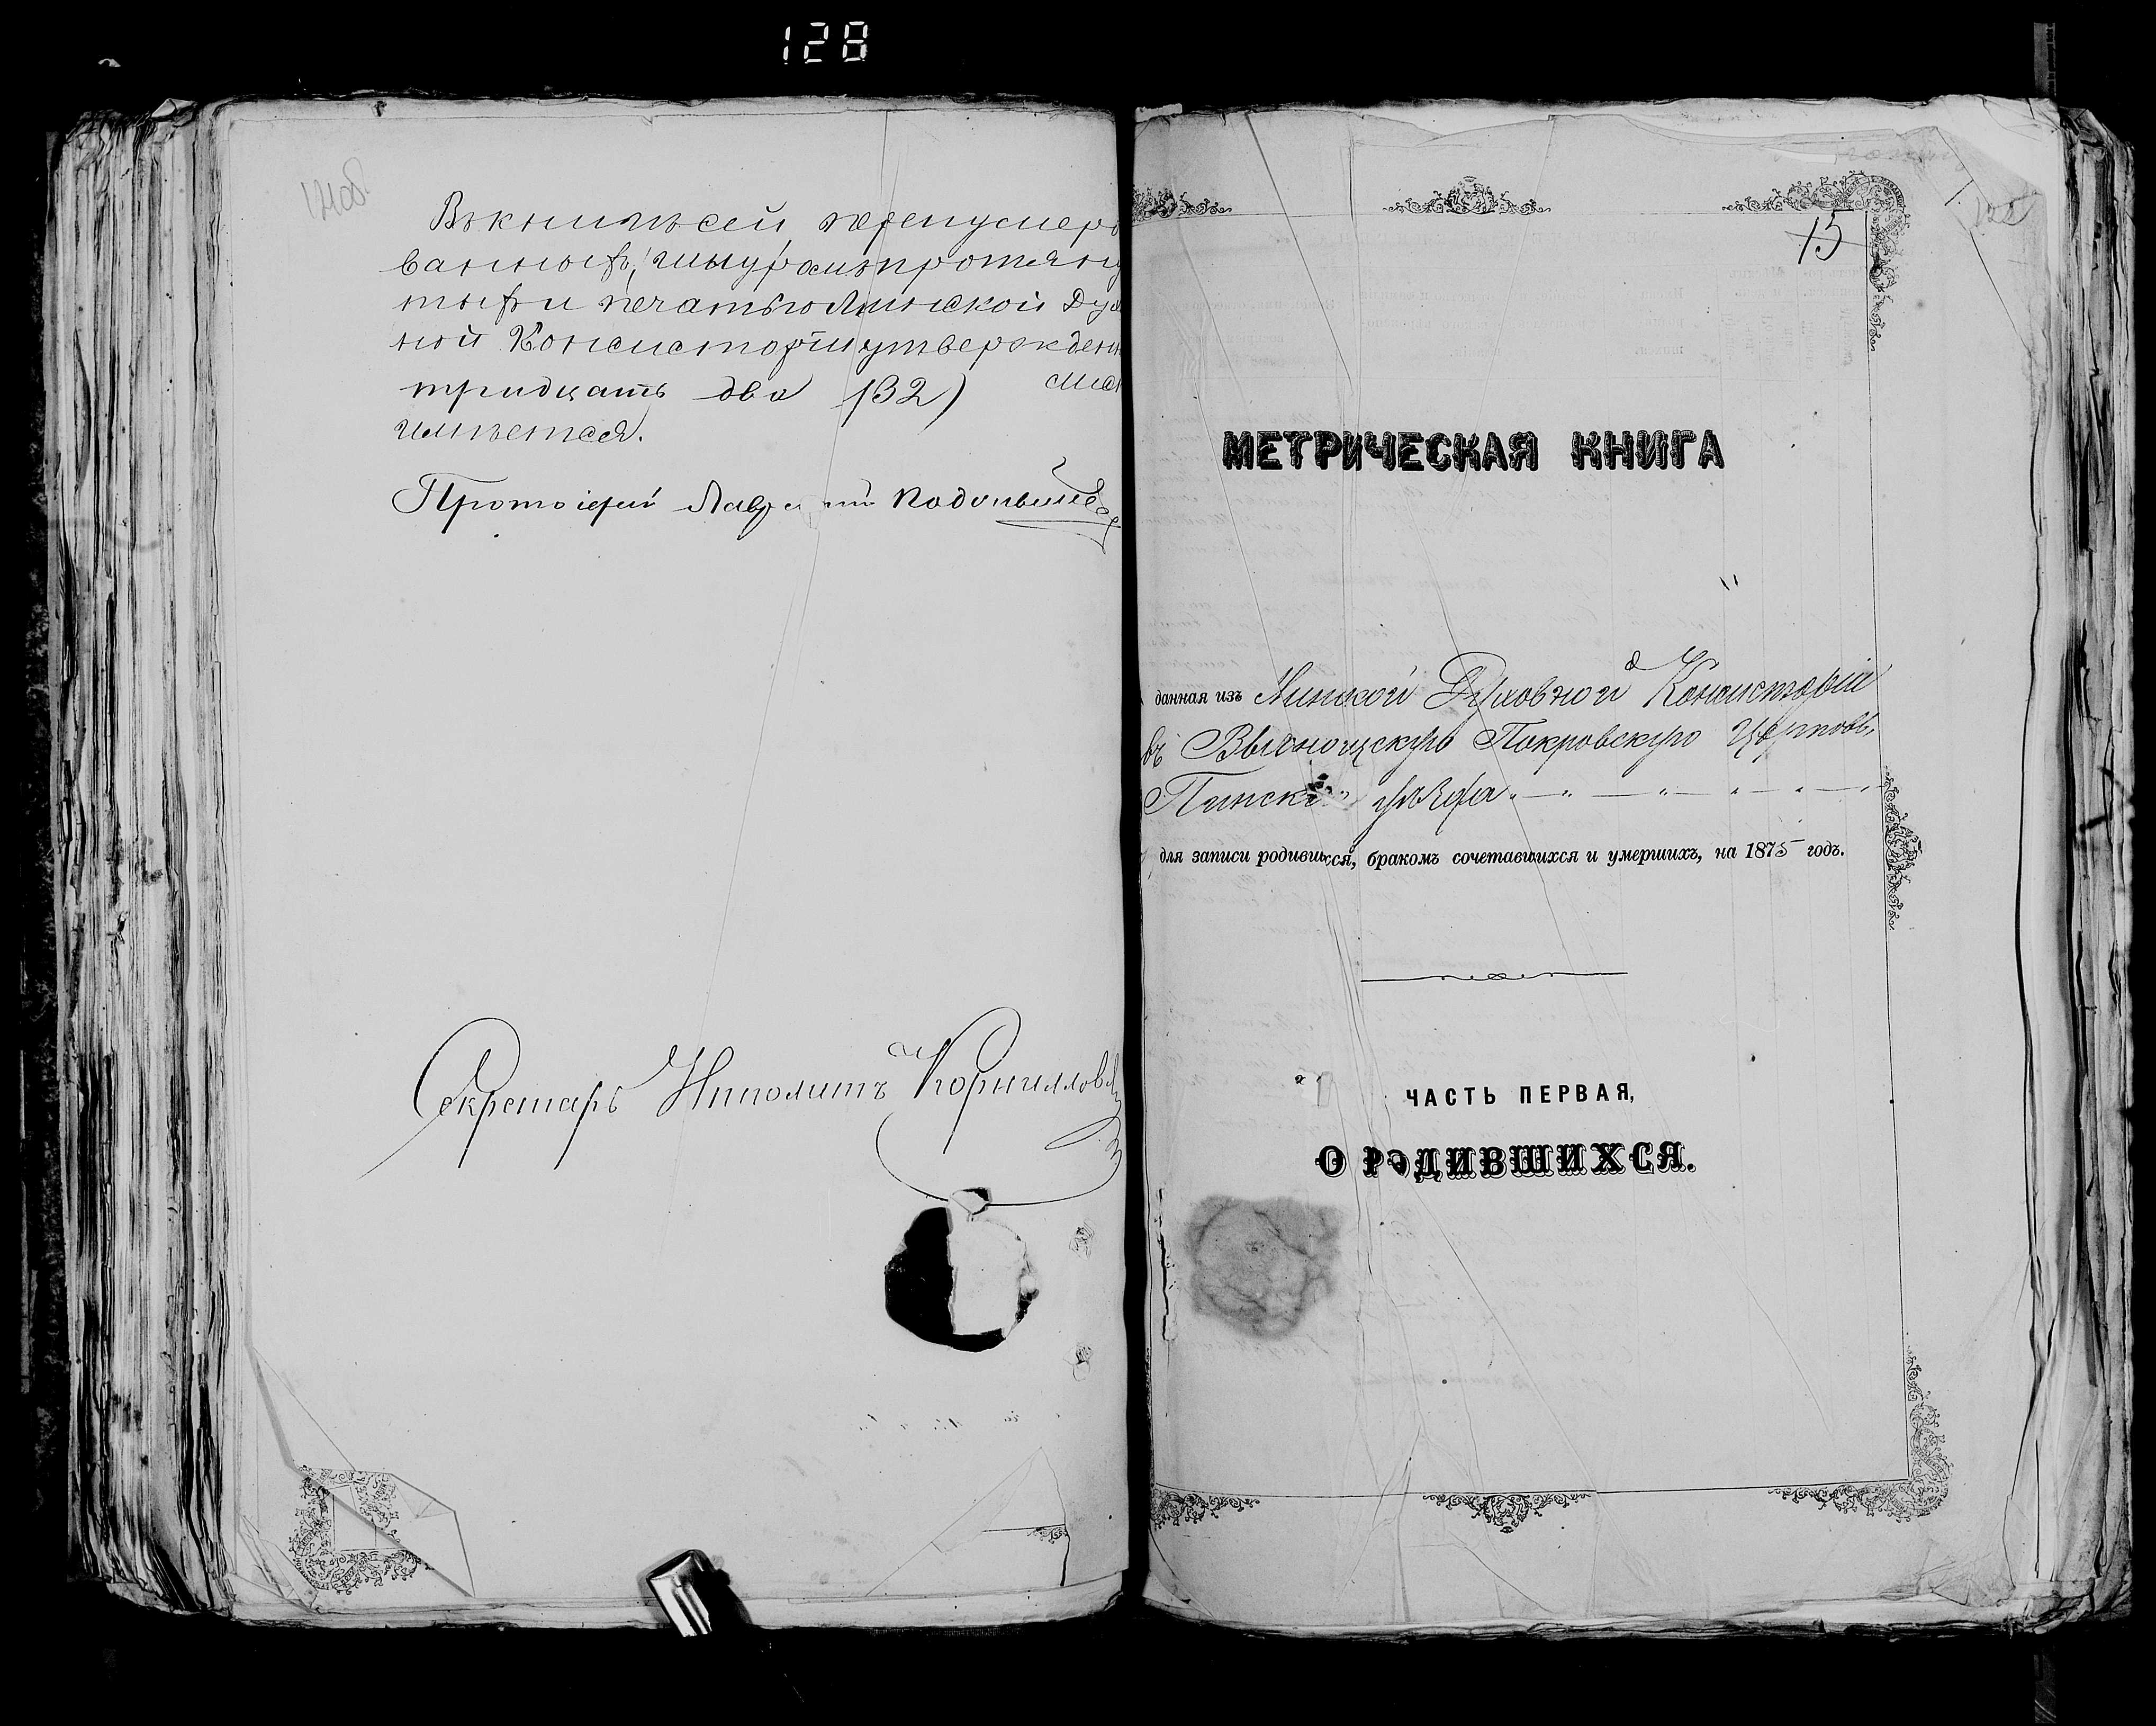 128
Въ книгѣ сей перенумеро
ванныхъ, шнуромъ протяну
тыхъ и печатью Минской Дух
ной Консисторіи утвержденн
тридцать два (32) лис
имѣется.
Протоіерей
Секретарь Ипполитъ Корнилов
15
МЕТРИЧЕСКАЯ КНИГА
данная изъ Минской Духовной Консисторіи
въ Выгонощскую Покровскую Церковь,
Пинскаго уѣзда
для записи родившихся, бракомъ сочетавшихся и умершихъ, на 1875 годъ.
ЧАСТЬ ПЕРВАЯ,
О РОДИВШИХСЯ.